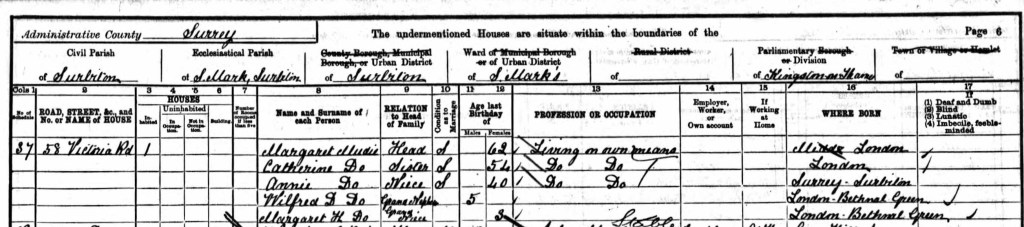 Administrative County Surrey The undermentioned Houses are situate within the boundaries of the Page 6
Civil Parish Ecclesiastical Parish County Borough, Municipal Borough, or Urban District Ward of Municipal Borough or of Urban District Rural District Parliamentary Borough or Division Town or Village or Hamlet
of Surbiton of S. Mark, Surbiton of Surbiton of S. Mark's of of Kingston on Thames of
Cols 1 2 3 4 5 6 7 8 9 10 11 12 13 14 15 16 17
No. of Schedule ROAD, STREET, &c., and No. or NAME of HOUSE HOUSES Inhabited Uninhabited In Occupation. Not in Occupation. Building Number of Rooms occupied if less than five Name and Surname of each Person RELATION to Head of Family Condition as to Marriage Age last Birthday of Males Females PROFESSION OR OCCUPATION Employer, Worker, or Own account If Working at Home WHERE BORN If (1) Deaf and Dumb (2) Blind (3) Lunatic (4) Imbecile, feeble-minded
37 58 Victoria Rd 1 Margaret Mudie Head S 62 Living on own means London
Catherine Do Sister S 54 Do Do London
Annie Do Niece S 40 Do Do Surrey - Surbiton
Wilfred D Do Grand Nephew 5 London - Bethnal Green
Margaret H Do Grand Niece 3 London - Bethnal Green
Stable